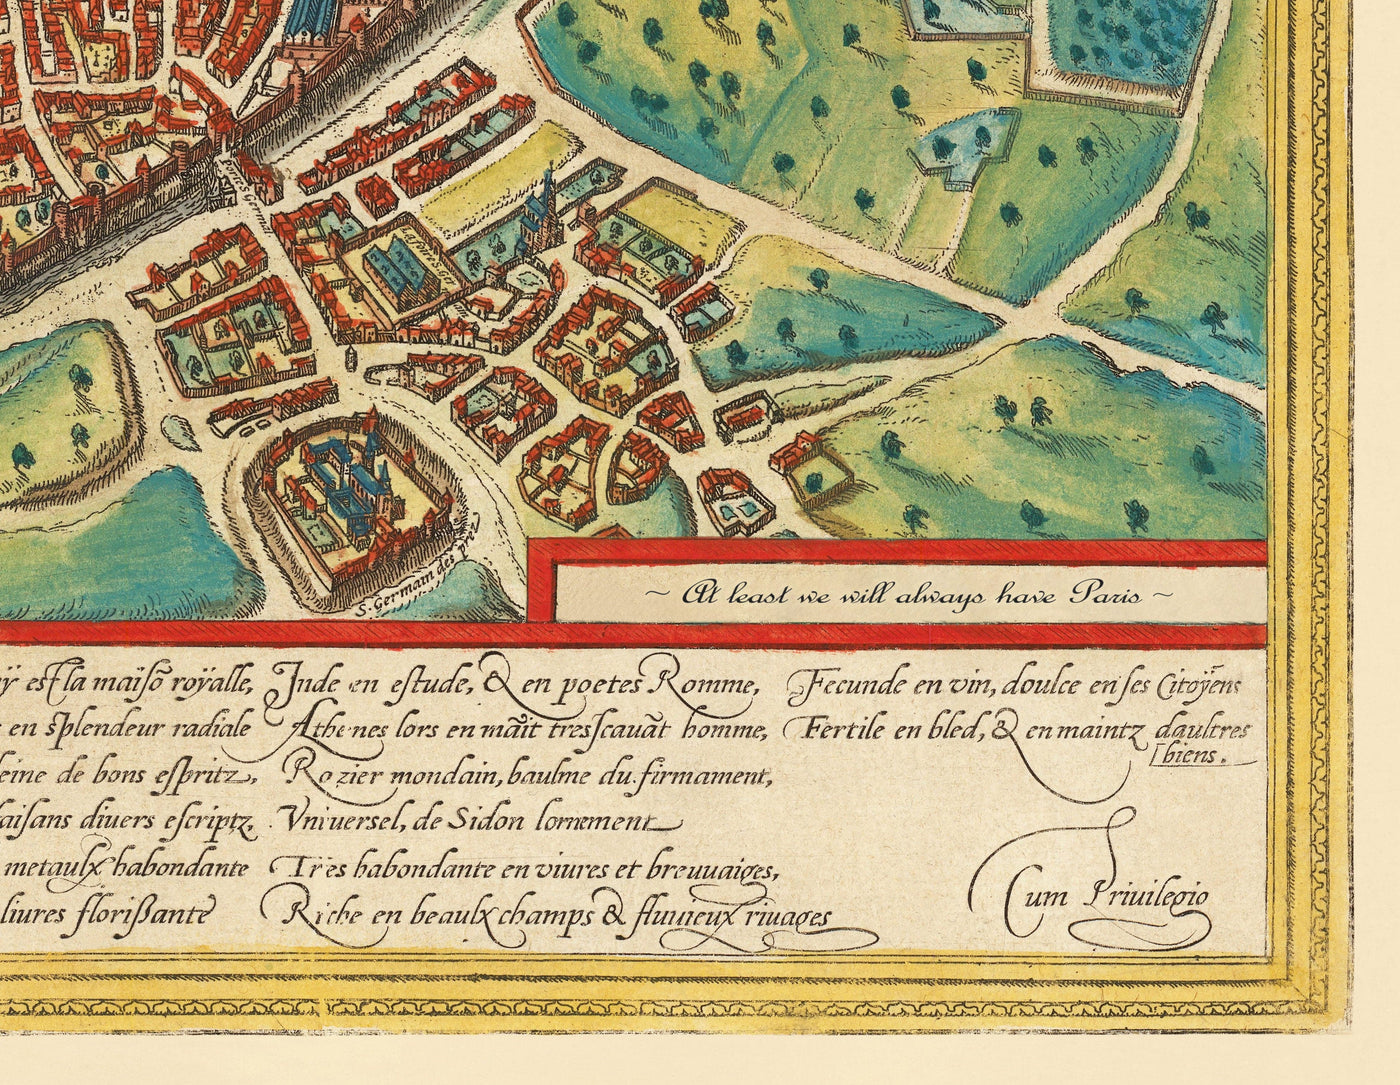 Portes S. Germ
S. Germain des prez
~ At least we will always have Paris ~
ÿ est la maisõ roÿalle,
en splendeur radiale
eine de bons espritz,
aisans divers escriptz,
metaulx habondante
livres florißante
Inde en estude, & en poetes Romme,
Athenes lors en mãit tresscavãt homme,
Rozier mondain, baulme du firmament,
Vniversel, de Sidon lornement
Tres habondante en viures et breuuaiges,
Riche en beaulx champs & fluuieux riuages
Fecunde en vin, doulce en ses Citoÿens
Fertile en bled, & en maintz daultres
biens.
Cum Priuilegio